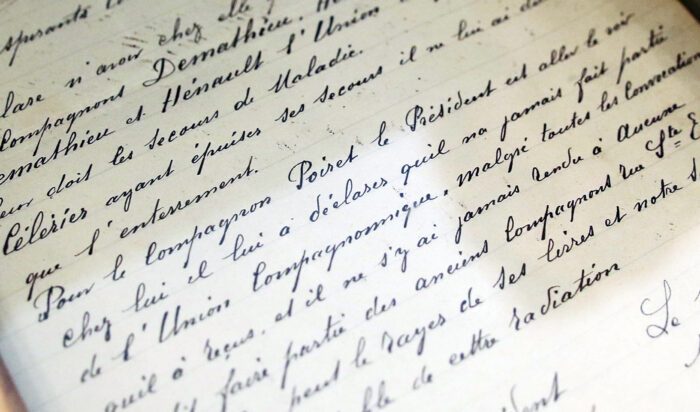 aspirants
clare n'avoir chez elle
Compagnons Demathieu, Hé
emathieu et Hénault l'Union
eur doit les secours de Maladie.
Célérier ayant épuiser ses secours il ne lui ai dû
que l'enterrement.
Pour le Compagnon Poiret le Président est aller le soir
chez lui il lui a déclarer qu'il na jamais fait partie
de l'Union Compagnonnique, malgré toutes les Convocation
quil à reçus. et il ne s'y ai jamais rendu à Aucune
it faire partie des anciens Compagnons rue Ste E
peut le rayer de ses livres et notre S
le de cette radiation
Le
dent